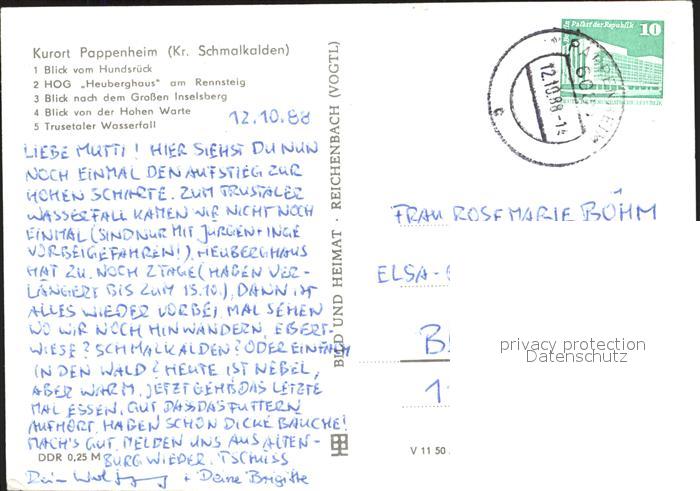 Kurort Pappenheim (Kr. Schmalkalden)
1 Blick vom Hundsrück
2 HOG „Heuberghaus" am Rennsteig
3 Blick nach dem Großen Inselsberg
4 Blick von der Hohen Warte
5 Trusetaler Wasserfall
12.10.88
LIEBE MUTTI! HIER SIEHST DU NUN
NOCH EINMAL DEN AUFSTIEG ZUR
HOHEN SCHARTE. ZUM TRUSTALER
WASSERFALL KAMEN WIR NICHT NOCH
EINMAL (SIND NUR MIT JÜRGEN + INGE
VORBEIGEFAHREN!). HEUBERGHAUS
HAT ZU. NOCH 2 TAGE (HABEN VER-
LÄNGERT BIS ZUM 15.10.), DANN IST
ALLES WIEDER VORBEI. MAL SEHEN
WO WIR NOCH HINWANDERN, EBERT-
WIESE? SCHMALKALDEN? ODER EINFACH
IN DEN WALD? HEUTE IST NEBEL,
ABER WARM. JETZT GEHT DAS LETZTE
MAL ESSEN. GUT DASS DAS FUTTERN
AUFHÖRT, HABEN SCHON DICKE BÄUCHE!
MACH'S GUT. MELDEN UNS AUS ALTEN-
BURG WIEDER. TSCHÜSS
Dein Wolfgang + Deine Brigitte
DDR 0,25 M
BILD UND HEIMAT · REICHENBACH (VOGTL)
V 11 50
Palast der Republik 10
12.10.88-14
FRAU ROSEMARIE BÖHM
ELSA-
B
1
privacy protection
Datenschutz